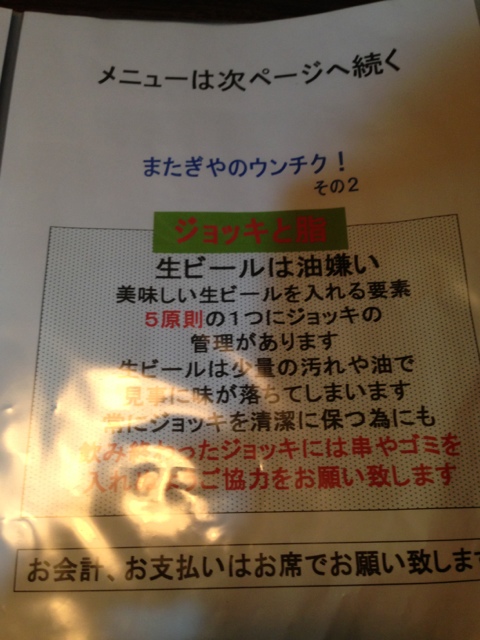 メニューは次ページへ続く
またぎやのウンチク！
その２
ジョッキと脂
生ビールは油嫌い
美味しい生ビールを入れる要素
５原則の１つにジョッキの
管理があります
生ビールは少量の汚れや油で
見事に味が落ちてしまいます
常にジョッキを清潔に保つ為にも
飲み終わったジョッキには串やゴミを
入れ ご協力をお願い致します
お会計、お支払いはお席でお願い致します